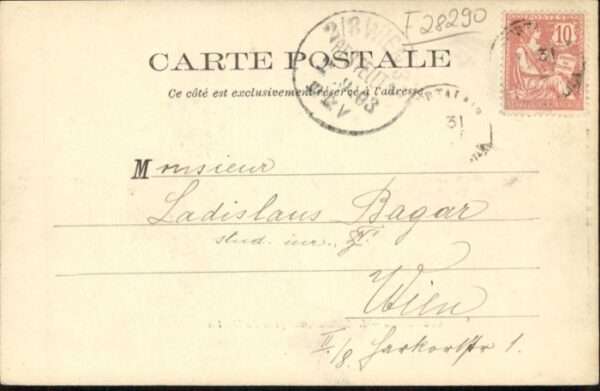 F 28290
CARTE POSTALE
Ce côté est exclusivement réservé à l'adresse
10
31
31
Monsieur
Ladislaus Bagar
stud. iur.
Wien
II/8. Harkortstr 1.